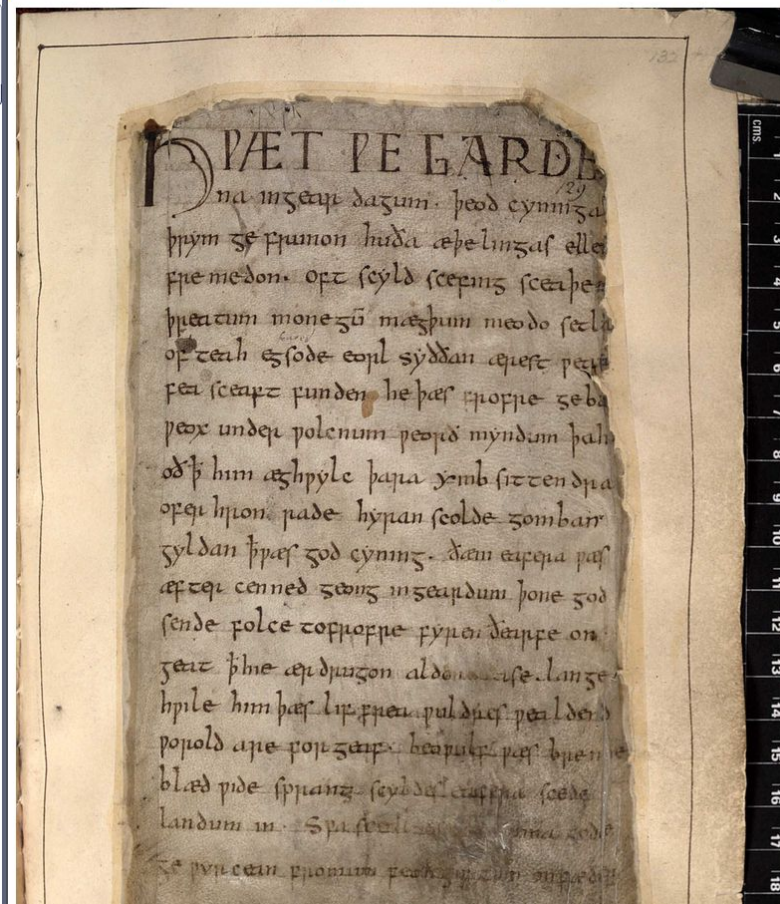 HǷÆT ǷE GARDE
na ingear dagum. þeod cyninga
þrym ge frunon huða æþelingas elle
fremedon. oft scyld scefing sceaþe
þreatum monegū mægþum meodo setla
of teah egsode eorl syððan ærest ƿea
sceaft funden he þæs frofre geba
ƿeox under ƿolcnum ƿeorð myndum þah
oðꝥ him æghƿylc þara ymb sittendra
ofer hron rade hyran scolde gomban
gyldan ꝥƿæs god cyning. ðæm eafera ƿæs
æfter cenned geong ingeardum þone god
sende folce tofrofre fyren ðearfe on
geat ꝥhie ær drugon aldor ase. lange
hƿile him þæs lif frea ƿuldres ƿealdend
ƿorold are for geaf. beoƿulf ƿæs breme
blæd ƿide sprang scyldes eafera scede
landum in. Sƿa
ge ƿyrcean fromum
132
129
cms
1
2
3
4
5
6
7
8
9
10
11
12
13
14
15
16
17
18